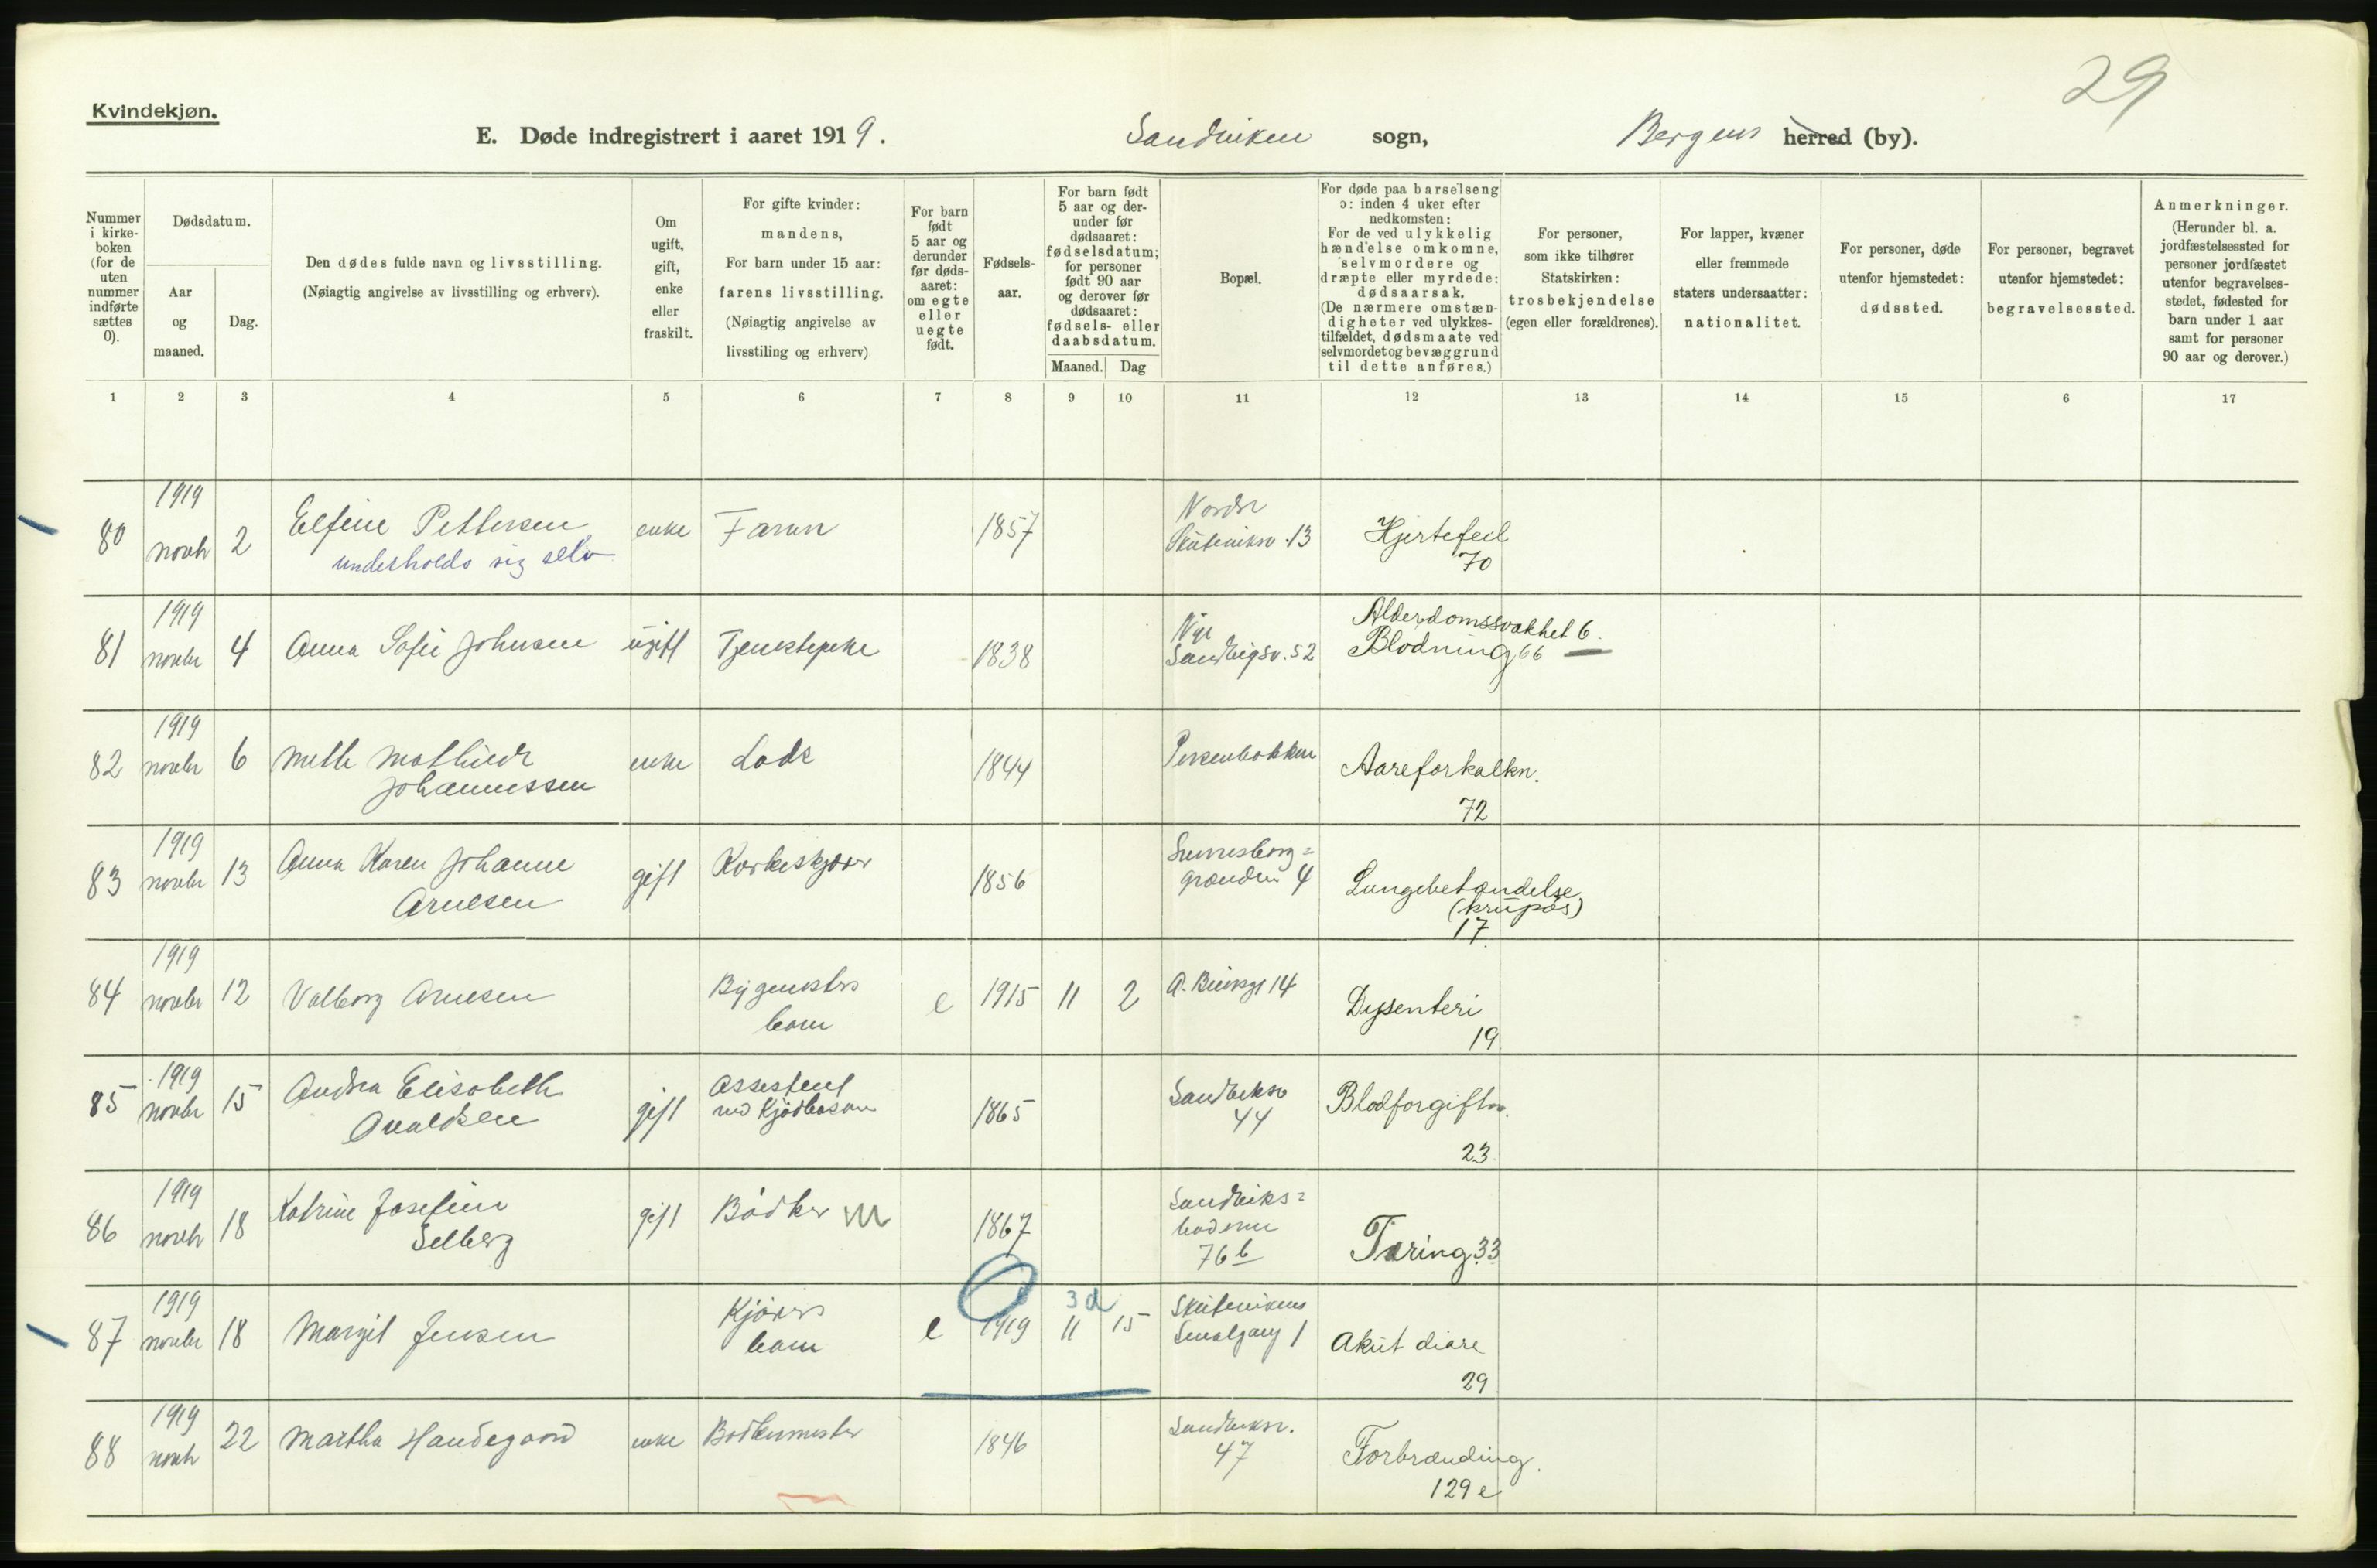 29
Kvindekjøn.
E. Døde indregistrert i aaret 1919. Sandviken sogn, Bergens herred (by).
Nummer i kirke-boken (for de uten nummer indførte sættes 0).
Dødsdatum.
Aar og maaned.
Dag.
Den dødes fulde navn og livsstilling.
(Nøiagtig angivelse av livsstilling og erhverv).
Om ugift, gift, enke eller fraskilt.
For gifte kvinder: mandens,
For barn under 15 aar: farens livsstilling.
(Nøiagtig angivelse av livsstiling og erhverv)
For barn født 5 aar og derunder før døds-aaret: om egte eller uegte født.
Fødsels-aar.
For barn født 5 aar og der-under før dødsaaret: fødselsdatum; for personer født 90 aar og derover før dødsaaret: fødsels- eller daabsdatum.
Maaned. Dag
Bopæl.
For døde paa barselseng ɔ: inden 4 uker efter nedkomsten:
For de ved ulykkelig hændelse omkomne, selvmordere og dræpte eller myrdede: dødsaarsak.
(De nærmere omstæn-digheter ved ulykkes-tilfældet, dødsmaate ved selvmordet og bevæggrund til dette anføres.)
For personer, som ikke tilhører Statskirken: trosbekjendelse (egen eller forældrenes).
For lapper, kvæner eller fremmede staters undersaatter: nationalitet.
For personer, døde utenfor hjemstedet: dødssted.
For personer, begravet utenfor hjemstedet: begravelsessted.
Anmerkninger.
(Herunder bl. a. jordfæstelsessted for personer jordfæstet utenfor begravelses-stedet, fødested for barn under 1 aar samt for personer 90 aar og derover.)
1 2 3 4 5 6 7 8 9 10 11 12 13 14 15 6 17
1919
80 novbr 2 Elfine Pettersen enke Farver 1857 Nordre Skuteviksv. 13 Hjertefeil
underholds sig selv 70
1919
81 novbr 4 Anna Sofie Johnsen ugift Tjenstepike 1838 Nye Sandvigsv. 52 Alderdomssvakhet 6.
Blodning 66
1919
82 novbr 6 Mette Mathilde enke Lods 1844 Aareforkalkn.
Johannessen 72
1919
83 novbr 13 Anna Karen Johanne gift Korkeskjærer 1856 grænden 4 Lungebetændelse
Arnesen (krupøs)
17
1919
84 novbr 12 Valborg Arnesen Bygmesters e 1915 11 2 14 Dysenteri
barn 19
1919
85 novbr 15 Andrea Elisabeth gift Assistent 1865 Sandviksv 44 Blodforgiftn.
ved Kjødbasaren
23
1919
86 novbr 18 Katrine Josefine gift Bødker 1867 Sandviks= boderne 76 b Tæring 33
Selberg
1919
87 novbr 18 Margit Jensen Kjørers e 1919 11 15 Skutevikens Smalgang 1 Akut diare
barn 3 d
29
1919
88 novbr 22 Martha Handegaard enke Bødkermester 1846 Sandviksv. 47 Forbrænding.
129 e